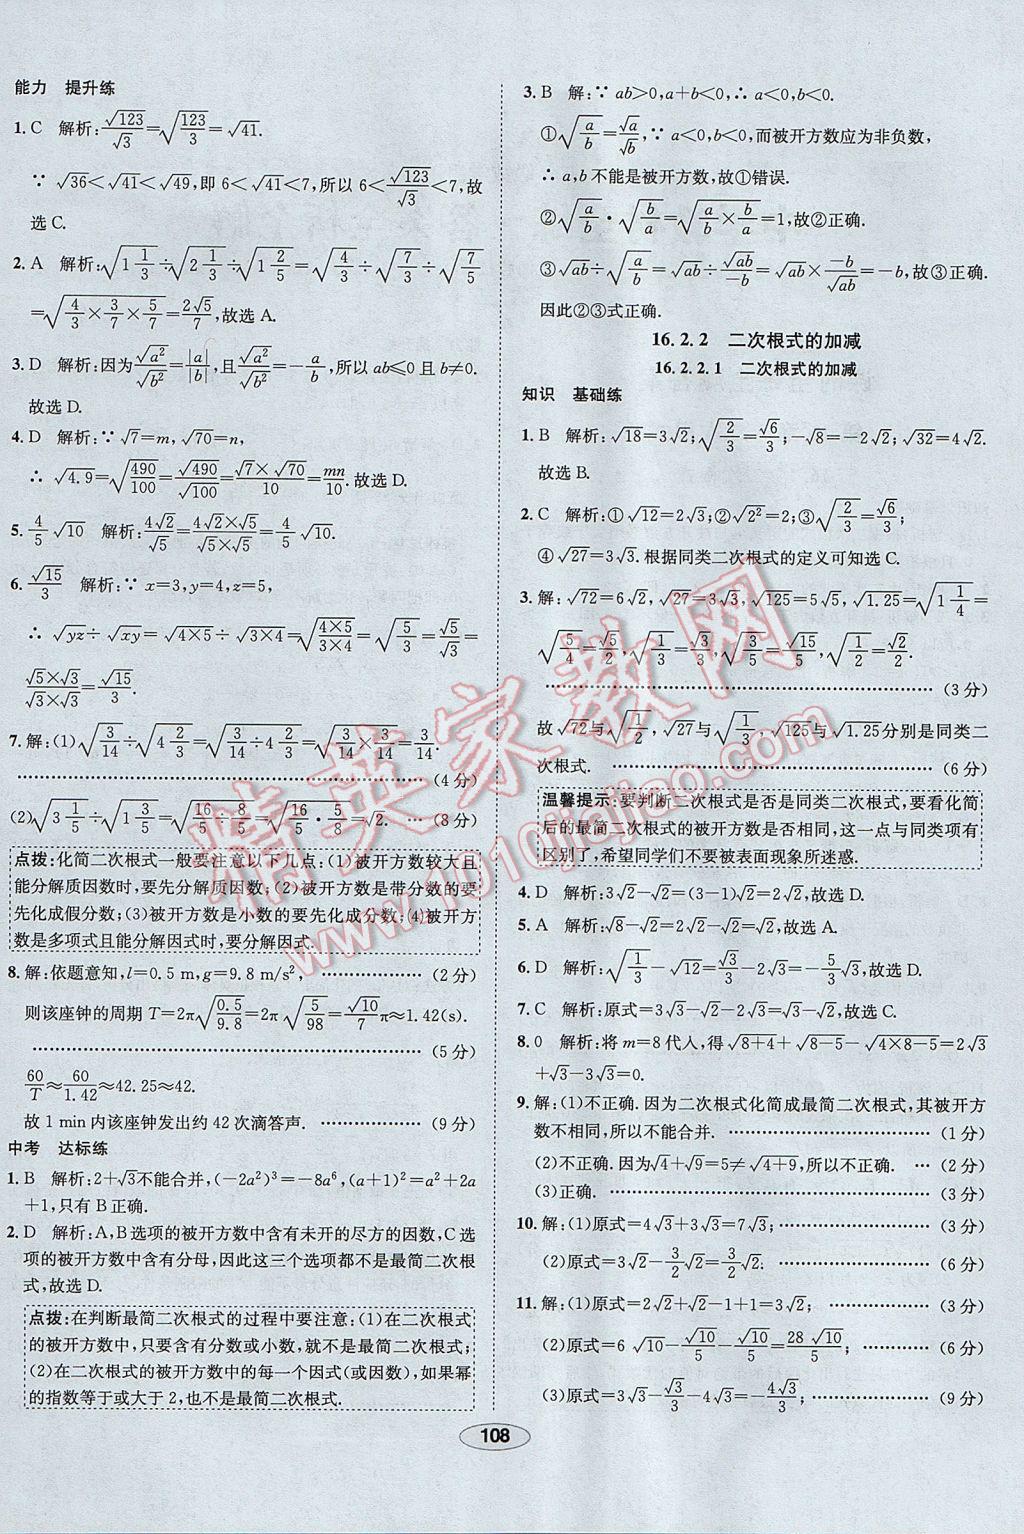 能力 提升练
1.C 解析:√123/√3=√(123/3)=√41.
∵ √36<√41<√49,即 6<√41<7,所以 6<√123/√3<7,故
选 C.
2.A 解析:√(1 1/3)÷√(2 1/3)÷√(1 2/5)=√(4/3)÷√(7/3)÷√(7/5)
=√(4/3×3/7×5/7)=2√5/7,故选 A.
3.D 解析:因为√a²/√b²=|a|/|b|,且√a²/√b²=-a/b,所以 ab≤0 且 b≠0.
故选 D.
4.D 解析:∵ √7=m,√70=n,
∴ √4.9=√(490/100)=√490/√100=√7×√70/10=mn/10.故选 D.
5.4/5 √10 解析:4√2/√5=4√2×√5/√5×√5=4/5 √10.
6.√15/3 解析:∵ x=3,y=4,z=5,
∴ √yz÷√xy=√4×5÷√3×4=√(4×5/3×4)=√(5/3)=√5/√3=
√5×√3/√3×√3=√15/3.
7.解:(1)√(3/14)÷√(4 2/3)=√(3/14÷4 2/3)=√(3/14×3/14)=3/14.
(4 分)
(2)√(3 1/5)÷√(1 3/5)=√(16/5÷8/5)=√(16/5·5/8)=√2. … (8 分)
点拨:化简二次根式一般要注意以下几点:(1)被开方数较大且
能分解质因数时,要先分解质因数;(2)被开方数是带分数的要
先化成假分数;(3)被开方数是小数的要先化成分数;(4)被开方
数是多项式且能分解因式时,要分解因式.
8.解:依题意知,l=0.5 m,g=9.8 m/s², ……………… (2 分)
则该座钟的周期 T=2π√(0.5/9.8)=2π√(5/98)=√10/7π≈1.42(s).
(5 分)
60/T≈60/1.42≈42.25≈42.
故 1 min 内该座钟发出约 42 次滴答声. ……………… (9 分)
中考 达标练
1.B 解析:2+√3不能合并,(-2a²)³=-8a⁶,(a+1)²=a²+2a
+1,只有 B 正确.
2.D 解析:A,B选项的被开方数中含有未开的尽方的因数,C选
项的被开方数中含有分母,因此这三个选项都不是最简二次根
式,故选 D.
点拨:在判断最简二次根式的过程中要注意:(1)在二次根式
的被开方数中,只要含有分数或小数,就不是最简二次根式;
(2)在二次根式的被开方数中的每一个因式(或因数),如果幂
的指数等于或大于 2,也不是最简二次根式.
3.B 解:∵ ab>0,a+b<0,∴ a<0,b<0.
①√(a/b)=√a/√b,∵ a<0,b<0,而被开方数应为非负数,
∴ a,b 不能是被开方数,故①错误.
②√(a/b)·√(b/a)=√(a/b×b/a)=1,故②正确.
③√ab÷√(a/b)=√ab÷√ab/-b=√ab×-b/√ab=-b,故③正确.
因此②③式正确.
16.2.2 二次根式的加减
16.2.2.1 二次根式的加减
知识 基础练
1.B 解析:√18=3√2;√(2/3)=√6/3;-√8=-2√2;√32=4√2.
故选 B.
2.C 解析:①√12=2√3;②√2²=2;③√(2/3)=√6/3;
④√27=3√3.根据同类二次根式的定义可知选 C.
3.解:√72=6√2,√27=3√3,√125=5√5,√1.25=√(1 1/4)=
√(5/4)=√5/2,√(1/3)=√3/3,√(3/5)=√15/5,√(1/2)=√2/2.
(3 分)
故√72与√(1/2),√27与√(1/3),√125与√1.25分别是同类二
次根式. ……………… (6 分)
温馨提示:要判断二次根式是否是同类二次根式,要看化简
后的最简二次根式的被开方数是否相同,这一点与同类项有
区别了,希望同学们不要被表面现象所迷惑.
4.D 解析:3√2-√2=(3-1)√2=2√2,故选 D.
5.A 解析:√8-√2=2√2-√2=√2.故选 A.
6.D 解析:√(1/3)-√12=√3/3-2√3=-5/3√3,故选 D.
7.C 解析:原式=3√3-√2-2√3=√3-√2.故选 C.
8.0 解析:将 m=8 代入,得√8+4+√8-5-√4×8-5=2√3
+√3-3√3=0.
9.解:(1)不正确.因为二次根式化简成最简二次根式,其被开方
数不相同,所以不能合并. ……………… (1 分)
(2)不正确.因为√4+√9=5≠√4+9,所以不正确. … (2 分)
(3)正确. ……………… (3 分)
10.解:(1)原式=4√3+3√3=7√3; ……………… (3 分)
(2)原式=3√2-3/2√2=3/2√2. ……………… (6 分)
11.解:(1)原式=2√2+√2-1+1=3√2; ……………… (3 分)
(2)原式=6√10-√10/5-√10/5=28√10/5; ……………… (6 分)
(3)原式=3√3-√3/3-4√3=-4√3/3; ……………… (9 分)
108
精英家教网
www.1010jiajiao.com